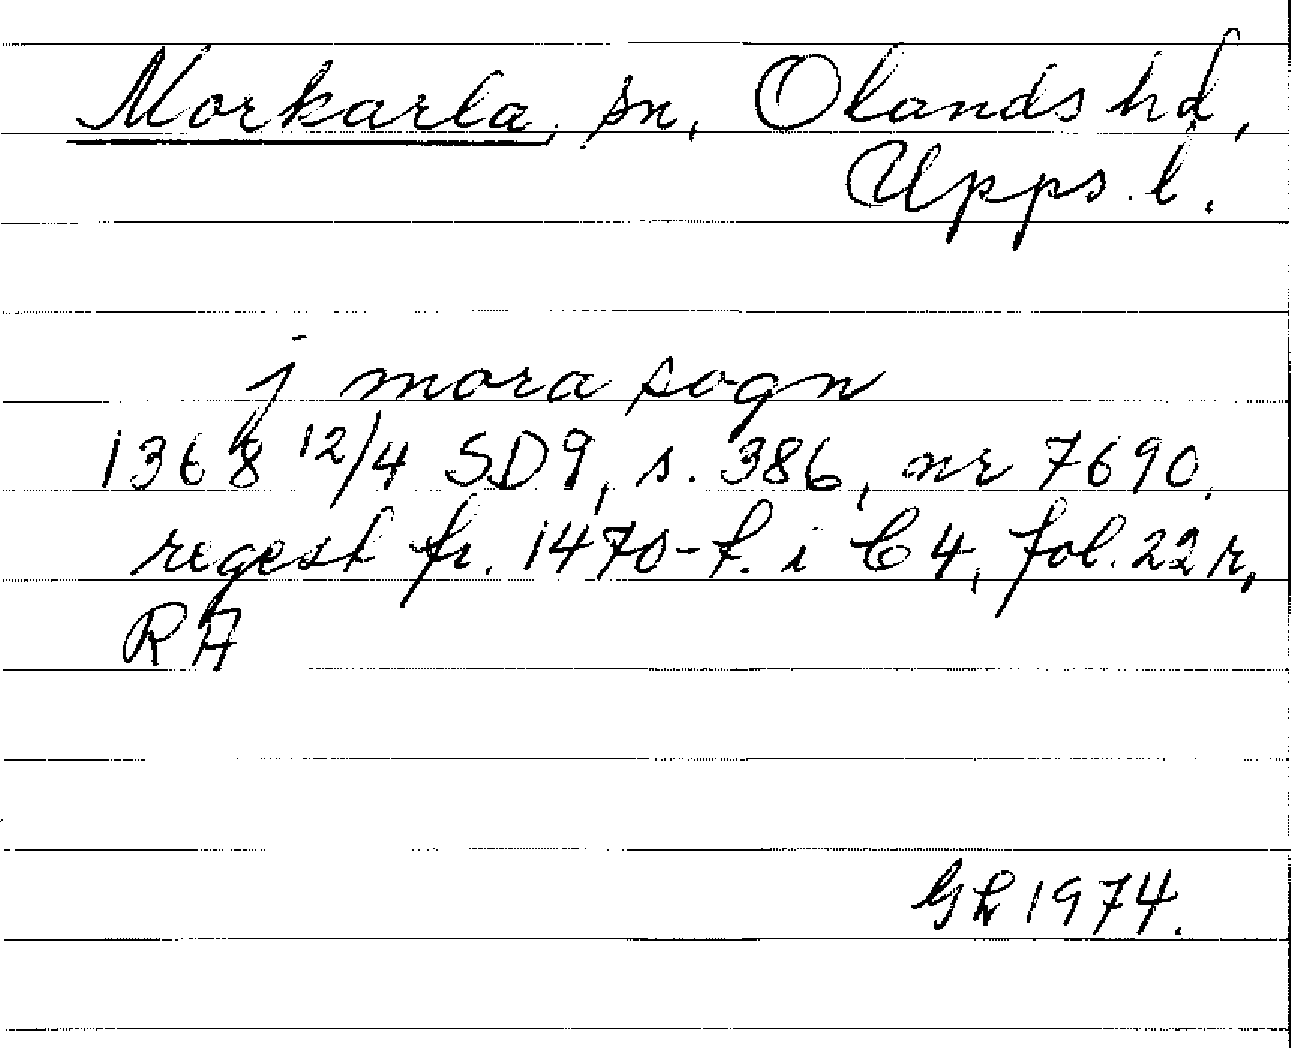 Morkarla, sn, Olands hd,
Upps. l.
j mora sogn
1368 12/4 SD9, s. 386, nr 7690,
regest fr. 1470-t. i C4, fol. 22 r,
RA
1974.